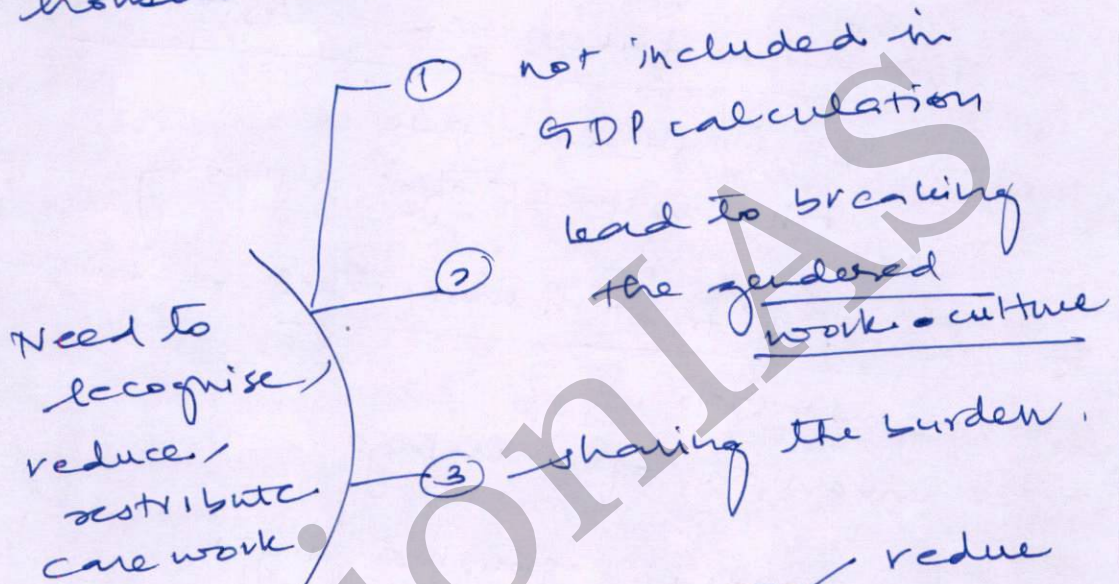 ① not included in
GDP calculation
② lead to breaking
the gendered
work-culture
Need to
recognise,
reduce,
restribute
care work
③ sharing the burden.
reduce
ionIAS